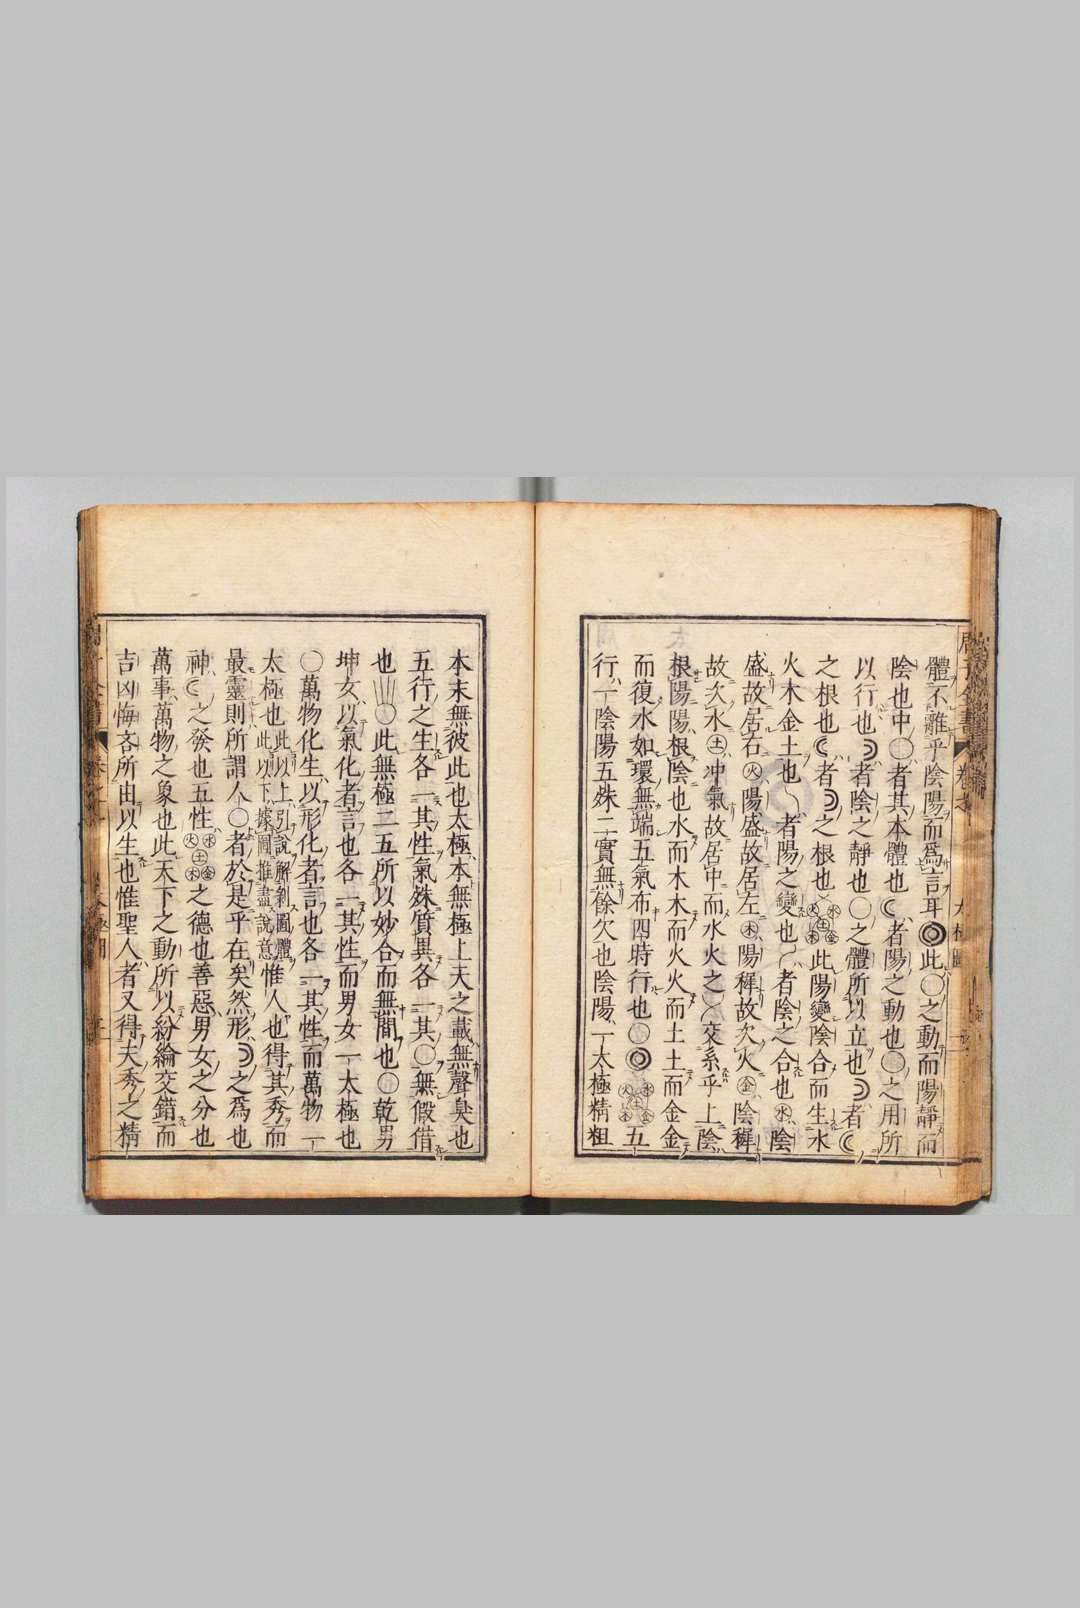 體不離乎陰陽而爲言耳◎此○之動而陽靜而
陰也中○者其本體也☾者陽之動也○之用所
以行也☽者陰之靜也○之體所以立也☽者☾
之根也☾者☽之根也水火土木金此陽變陰合而生水
火木金土也㇏者陽之變也㇒者陰之合也㊌陰
盛故居右㊋陽盛故居左㊍陽穉故次火㊎陰穉
故次水㊏冲氣故居中而水火之㐅交系乎上陰
根陽陽根陰也水而木木而火火而土土而金金
而復水如環無端五氣布四時行也○◎水火土木金五
行一陰陽五殊二實無餘欠也陰陽一太極精粗
本末無彼此也太極本無極上天之載無聲臭也
五行之生各一其性氣殊質異各一其○無假借
也○此無極二五所以妙合而無間也○乾男
坤女以氣化者言也各一其性而男女一太極也
○萬物化生以形化者言也各一其性而萬物一
太極也此以上引說解剝圖體此以下據圖推盡說意惟人也得其秀而
最靈則所謂人○者於是乎在矣然形☽之爲也
神☾之發也五性水火土木金之德也善惡男女之分也
萬事萬物之象也此天下之動所以紛綸交錯而
吉凶悔吝所由以生也惟聖人者又得夫秀之精